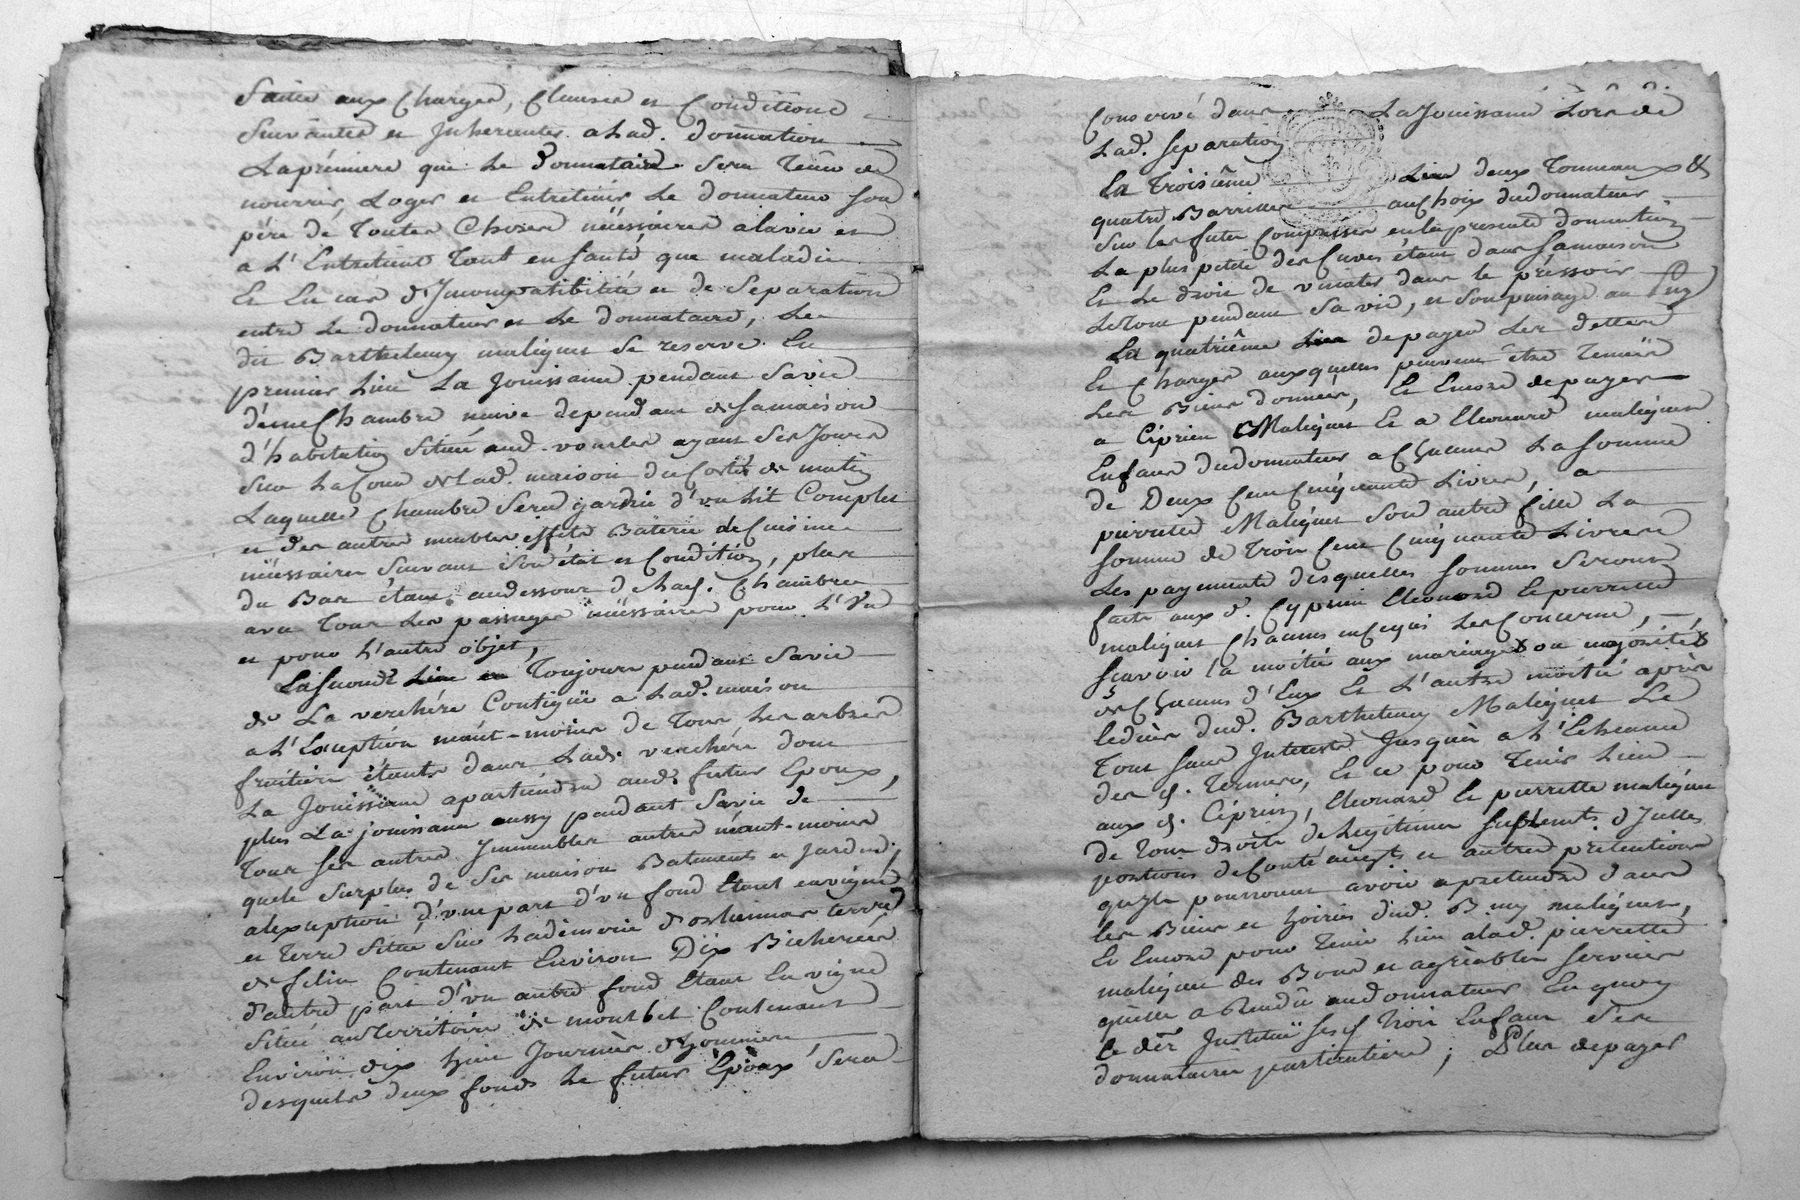 faitte aux Charges, Clauses et Conditions
Suivantes et Inherentes a lad. donnation
La premiere que Le Donnataire Sera Tenu de
nourrir, Loger et Entretenir Le donnateur Son
pére de Toutes Choses nécessaires a la vie et
a L'Entretient Tant en Santé que maladie
Et En cas d'Incompatibilité et de Separation
entre Le donnateur et Le donnataire, Le
dit Barthelemy maligner Se reserve En
premier Lieu La Jouissance pendant Savie
d'une Chambre neuve dependant de Samaison
d'habitation Située aud. vourles ayant Ses Jours
Sur La Cour de Lad. maison du Coté de matin
Laquelle Chambre Sera garnie d'un Lit Complet
et des autres meubles effets Baterie de Cuisine
nécessaires Suivant Son état et Condition, plus
du Bas étant audessous de Lad. Chambre
avec Tous Les passages nécessaires pour L'un
et pour L'autre objet,
La Seconde Lieu Toujours pendant Savie
de La verchére Contigüe a Lad. maison
a L'Exception néant-moins de Tous Les arbres
fruitiers étants dans Lad. verchére dont
La Jouissance apartiendra aud. futur Epoux,
plus La jouissance aussy pendant Savie de
Tous Ses autres Immeubles autres néant-moins
que le Surplus de Ses maison Batiments et Jardin,
a lexception d'une part d'un fond Etant en vigne
et Terre Situé Sur
Contenant Environ Dix Bicherées
d'autre part d'un autre fond Etant En vigne
Situé au Territoire de montbet Contenant
Environ dix huit Journées d'hommes
desquels deux fonds Le futur Epoux Sera
Conservé dans La Jouissance Lors de
Lad. Separation
La Troisiéme Lieu deux Tonneaux &
quatre Barrilles au Choix dudonnateur
Sur les futs Comprises en la presente donnation
La plus petite des Cuves étant dans Samaison
Et Le droit de dans le préssoir
Letout pendant Sa vie, et Son puisage au Puy
La quatriéme Lieu depayer Les dettes
Et Charges auxquelles peuvent être Tenus
Les Biens donnés, Et Encore depayer
a Ciprien Maligner Et a Eleonard maligner
Enfans dudonnateur a Chacun La Somme
de Deux Cent Cinquante Livres, a
pierrette Maligner Son autre fille La
Somme de Trois Cent Cinquante Livres
Les payements desquelles Sommes Seront
faits aux d. Cyprien Eleonard Et pierrette
maligner Chacun en Ceque Les Concerne,
Scavoir la moitié aux mariages ou majorités
de Chacun d'Eux Et L'autre moitié après
le décès dud. Barthelemy Maligner Le
Tout Sans Interets Jusques a L'Echeance
des d. Termes, Et ce pour Tenir Lieu
aux d. Ciprien, Eleonard Et pierrette maligner
de Tous droits de Legitimes Suplements d'Icelles
portions de et autres pretentions
quils pourroient avoir a pretendre dans
les Biens et hoiries dud. B.my maligner,
Et Encore pour Tenir Lieu alad. pierrette
maligner des Bons et agréables Services
quelle a Rendû audonnateur En quoy
ce der Instituë Sesd. Trois Enfans Ses
donnataires particuliers; Plus depayer